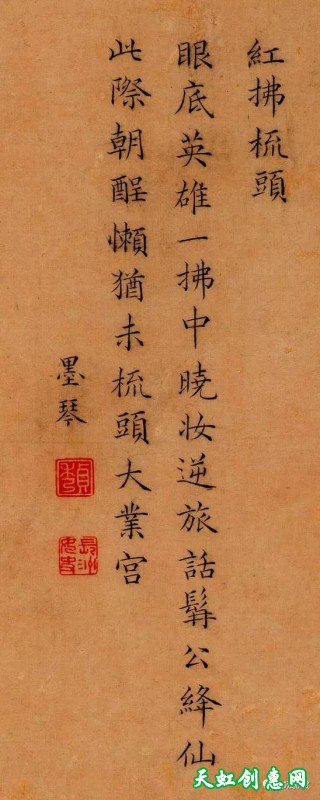 紅拂梳頭
眼底英雄一拂中曉妆逆旅話髯公絳仙
此際朝酲懶猶未梳頭大業宮
墨琴
貞秀
長洲女史
天虹创意网